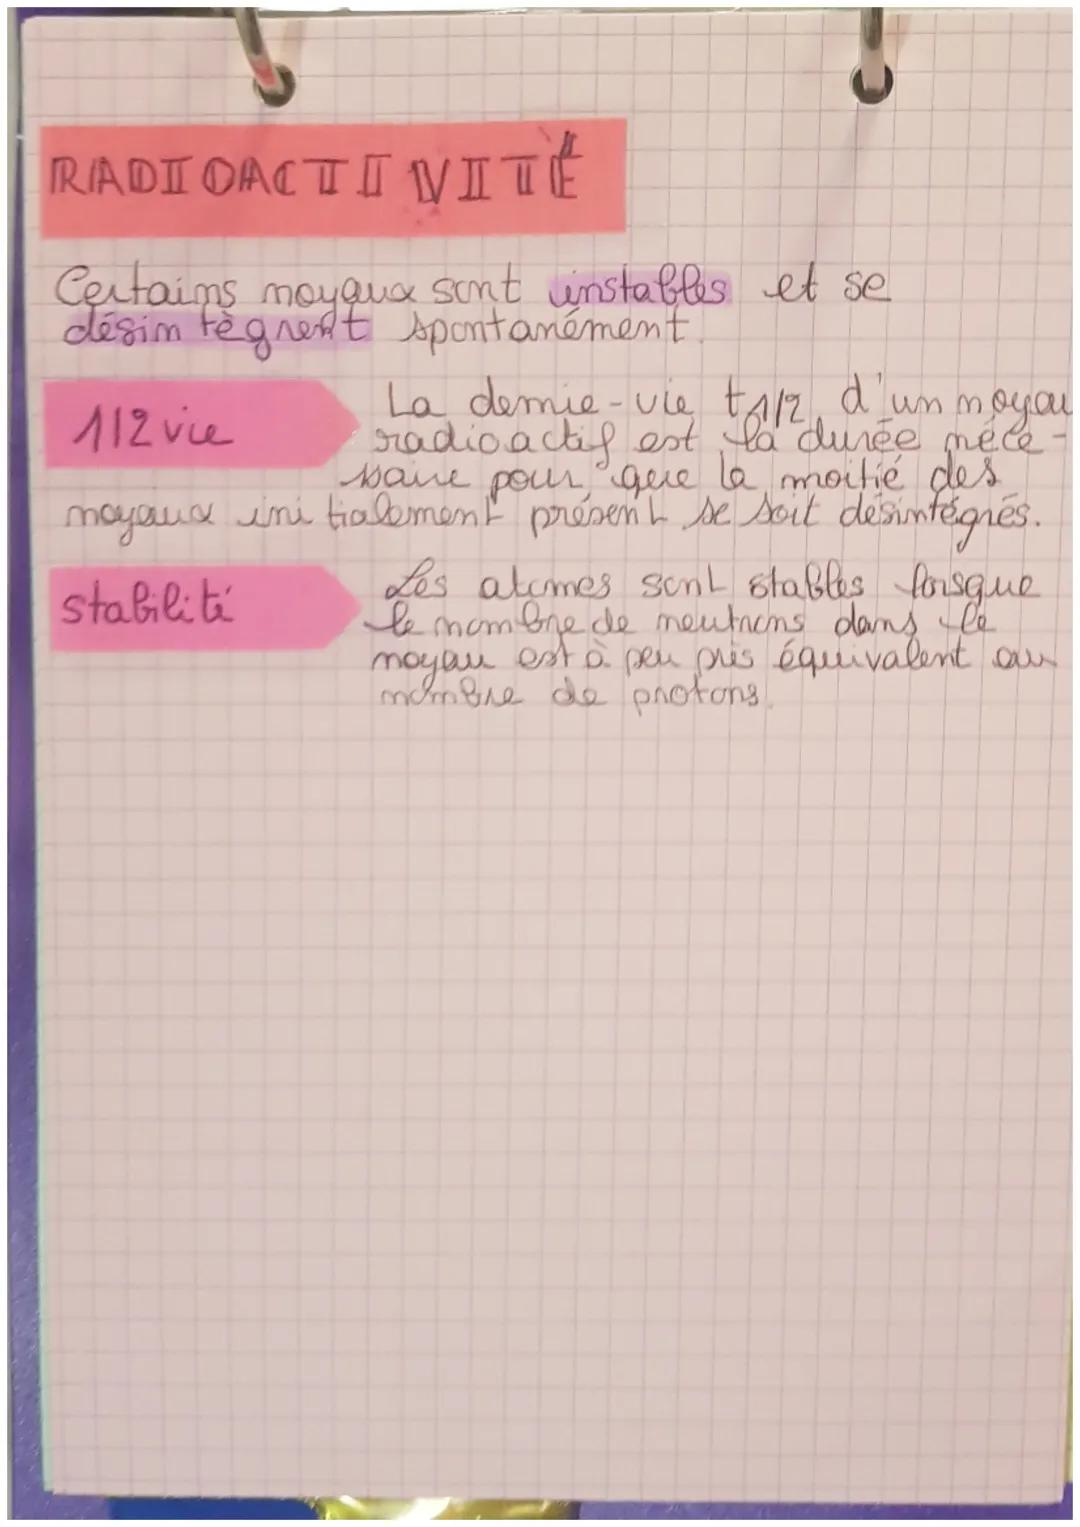 RADIOACTIVITÉ
Certains noyaux sont instables et se
désintègrent spontanément.
1/2 vie
La demie-vie t1/2 d'un noyau
radioactif est la durée néce-
ssaire pour que la moitié des
noyaux initialement présent se soit désintégrés.
stabilité
Les atomes sont stables lorsque
le nombre de neutrons dans le
noyau est à peu près équivalent au
nombre de protons.